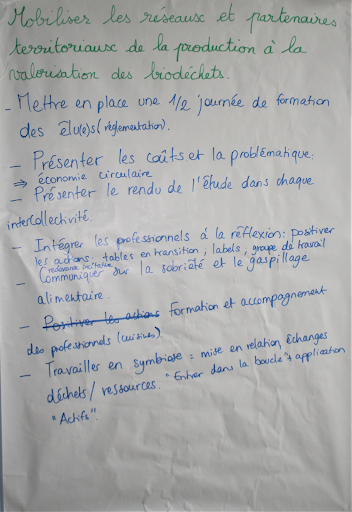 Mobiliser les réseaux et partenaires
territoriaux de la production à la
valorisation des biodéchets.
- Mettre en place une 1/2 journée de formation
des élu(e)s (réglementation).
- Présenter les coûts et la problématique:
⇒ économie circulaire
- Présenter le rendu de l'étude dans chaque
intercollectivité.
- Intégrer les professionnels à la réflexion: positiver
les actions, tables en transition, labels, groupe de travail
redevance incitative
- Communiquer sur la sobriété et le gaspillage
alimentaire.
- Positiver les actions Formation et accompagnement
des pofessionnels (cuisines)
- Travailler en symbiose: mise en relation, échanges
déchets/ressources. "Entrer dans la boucle" + application
"Actifs".